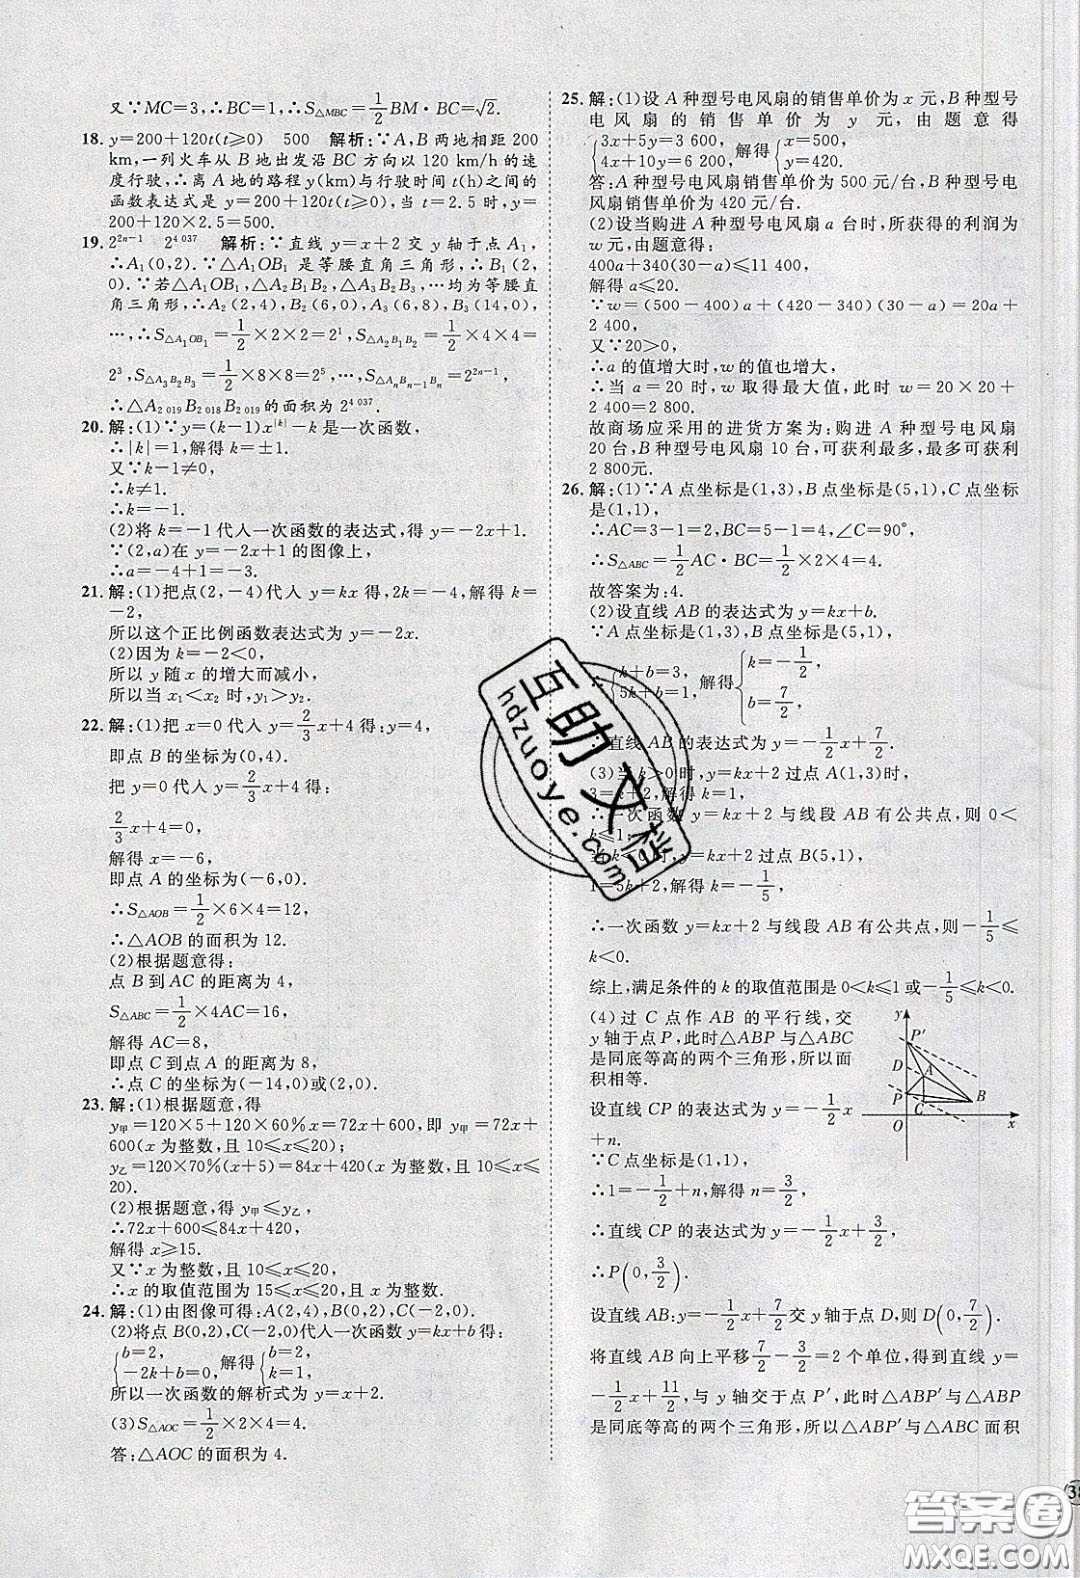 又∵MC=3,∴BC=1,∴S△MBC=1/2BM·BC=√2.
18. y=200+120t(t≥0) 500 解析:∵A,B两地相距200
km,一列火车从B地出发沿BC方向以120 km/h的速
度行驶,∴离A地的路程y(km)与行驶时间t(h)之间的
函数表达式是y=200+120t(t≥0).当t=2.5时,y=
200+120×2.5=500.
19. 2^(2n-1) 2^(4 037) 解析:∵直线y=x+2交y轴于点A₁,
∴A₁(0,2).∵△A₁OB₁是等腰直角三角形,∴B₁(2,
0).∵若△A₁OB₁,△A₂B₁B₂,△A₃B₂B₃,…均为等腰直
角三角形,∴A₂(2,4),B₂(6,0),A₃(6,8),B₃(14,0),
…,∴S△A₁OB₁=1/2×2×2=2¹,S△A₂B₁B₂=1/2×4×4=
2³,S△A₃B₂B₃=1/2×8×8=2⁵,…,S△AₙBₙ₋₁Bₙ=2^(2n-1),
∴△A₂₀₁₉B₂₀₁₈B₂₀₁₉的面积为2^(4 037).
20. 解:(1)∵y=(k-1)x^|k|-k是一次函数,
∴|k|=1,解得k=±1.
又∵k-1≠0,
∴k≠1.
∴k=-1.
(2)将k=-1代入一次函数的表达式,得y=-2x+1.
∵(2,a)在y=-2x+1的图像上,
∴a=-4+1=-3.
21. 解:(1)把点(2,-4)代入y=kx得,2k=-4,解得k=
-2,
所以这个正比例函数表达式为y=-2x.
(2)因为k=-2<0,
所以y随x的增大而减小,
所以当x₁<x₂时,y₁>y₂.
22. 解:(1)把x=0代入y=2/3x+4得:y=4,
即点B的坐标为(0,4).
把y=0代入y=2/3x+4得:
2/3x+4=0,
解得x=-6,
即点A的坐标为(-6,0).
∴S△AOB=1/2×6×4=12,
∴△AOB的面积为12.
(2)根据题意得:
点B到AC的距离为4,
S△ABC=1/2×4AC=16,
解得AC=8,
即点C到点A的距离为8,
∴点C的坐标为(-14,0)或(2,0).
23. 解:(1)根据题意,得
y甲=120×5+120×60%x=72x+600,即y甲=72x+
600(x为整数,且10≤x≤20);
y乙=120×70%(x+5)=84x+420(x为整数,且10≤x≤
20).
(2)根据题意,得y甲≤y乙,
∴72x+600≤84x+420,
解得x≥15.
又∵x为整数,且10≤x≤20,
∴x的取值范围为15≤x≤20,且x为整数.
24. 解:(1)由图像可得:A(2,4),B(0,2),C(-2,0).
(2)将点B(0,2),C(-2,0)代入一次函数y=kx+b得:
{b=2, -2k+b=0, 解得{b=2, k=1,
所以一次函数的解析式为y=x+2.
(3)S△AOC=1/2×2×4=4.
答:△AOC的面积为4.
25. 解:(1)设A种型号电风扇的销售单价为x元,B种型号
电风扇的销售单价为y元,由题意得
{3x+5y=3 600, 4x+10y=6 200, 解得{x=500, y=420.
答:A种型号电风扇销售单价为500元/台,B种型号电
风扇销售单价为420元/台.
(2)设当购进A种型号电风扇a台时,所获得的利润为
w元,由题意得:
400a+340(30-a)≤11 400,
解得a≤20.
∵w=(500-400)a+(420-340)(30-a)=20a+
2 400,
又∵20>0,
∴a的值增大时,w的值也增大,
∴当a=20时,w取得最大值,此时w=20×20+
2 400=2 800.
故商场应采用的进货方案为:购进A种型号电风扇
20台,B种型号电风扇10台,可获利最多,最多可获利
2 800元.
26. 解:(1)∵A点坐标是(1,3),B点坐标是(5,1),C点坐标
是(1,1),
∴AC=3-1=2,BC=5-1=4,∠C=90°,
∴S△ABC=1/2AC·BC=1/2×2×4=4.
故答案为:4.
(2)设直线AB的表达式为y=kx+b.
∵A点坐标是(1,3),B点坐标是(5,1),
∴{k+b=3, 5k+b=1, 解得{k=-1/2, b=7/2,
∴直线AB的表达式为y=-1/2x+7/2.
(3)当k>0时,y=kx+2过点A(1,3),
3=k+2,解得k=1,
∴一次函数y=kx+2与线段AB有公共点,则0<
k≤1;
当k<0时,y=kx+2过点B(5,1),
1=5k+2,解得k=-1/5,
∴一次函数y=kx+2与线段AB有公共点,则-1/5≤
k<0.
综上,满足条件的k的取值范围是0<k≤1或-1/5≤k<0.
(4)过C点作AB的平行线,交
y轴于点P,此时△ABP与△ABC
是同底等高的两个三角形,所以面
积相等.
设直线CP的表达式为y=-1/2x
+n.
∵C点坐标是(1,1),
∴1=-1/2+n,解得n=3/2,
∴直线CP的表达式为y=-1/2x+3/2,
∴P(0,3/2).
设直线AB:y=-1/2x+7/2交y轴于点D,则D(0,7/2).
将直线AB向上平移7/2-3/2=2个单位,得到直线y=
-1/2x+11/2,与y轴交于点P′,此时△ABP′与△ABC
是同底等高的两个三角形,所以△ABP′与△ABC面积
y
P′
D
A
P
C
B
x
互助文档
hdzuoye.com
答案圈
MXQE.COM